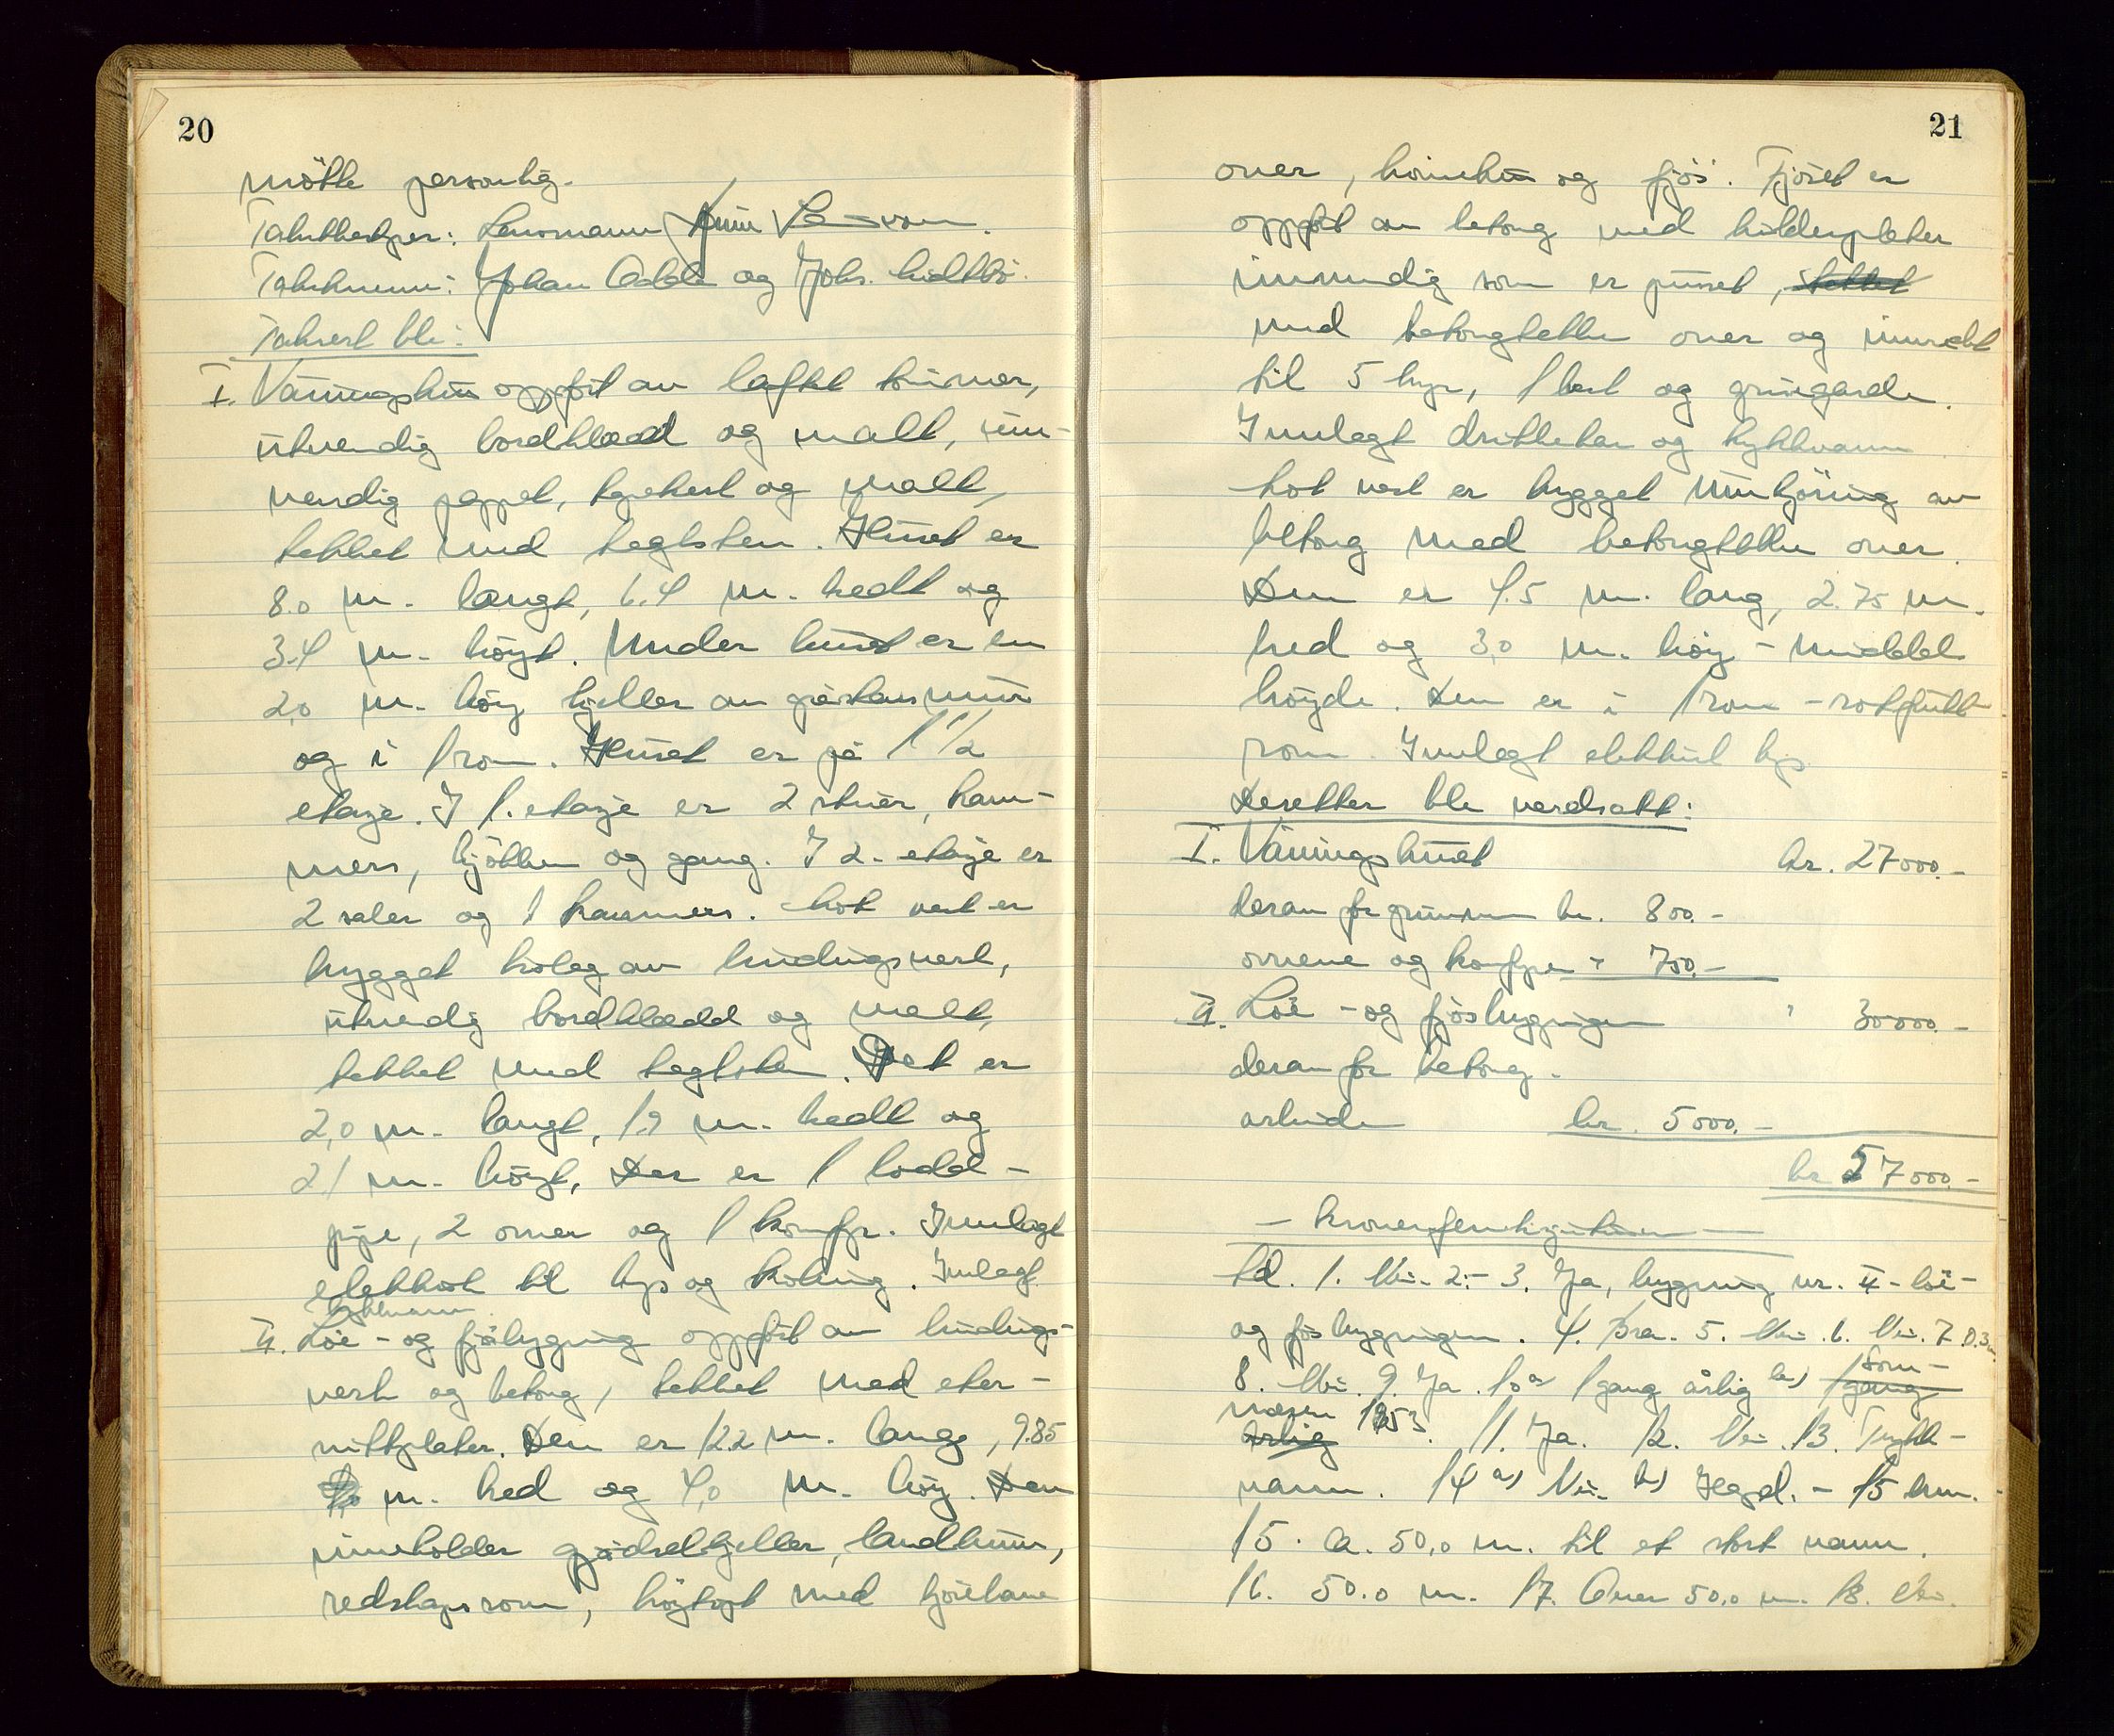 20
møtte personlig.
Takstbestyrer: Lensmann
Takstmenn: Johan Odde og Johs. Midtbö.
Taksert ble:
I. Våningshus oppført av laftet tømmer,
utvendig bordkledd og malt, inn-
vendig pappet, tapetsert og malt,
tekket med taglsten. Huset er
8.0 m. langt, 6.4 m. bredt og
3.4 m. høyt. Under huset er en
2,0 m. høy kjeller av gråstensmur
og i 1 rom. Huset er på 1 1/2
etasje. I 1. etasje er 2 stuer, kam-
mers, kjökken og gang. I 2. etasje er
2 saler og 1 kammers. Mot vest er
bygget bislag av bindingsverk,
utvendig bordkledd og malt,
tekket med taglsten. Det er
2,0 m. langt, 1.9 m. bredt og
2.1 m. høyt. Der er 1 lodd-
pipe, 2 ovner og 1 komfyr. Innlagt
elektrisk til lys og koking. Innlagt
trykkvann.
II. Löe- og fjösbygning oppført av bindings-
verk og betong, tekket med eter-
nittplater. Den er 12.2 m. lang, 9.85
m. bred og 4,0 m. høy. Den
inneholder gjødselkjeller, landkum,
redskapsrom, høyloft med kjørebane
21
over, hønsehus og fjøs. Fjøset er
oppført av betong med bilderplater
innvendig som er pusset, tekket
med betongdekke over og innredet
til 5 kyr, 1 hest og grisgarde.
Innlagt drikkekar og trykkvann.
Mot vest er bygget tilkjøring av
betong med betongdekke over.
Den er 4.5 m. lang, 2.75 m.
bred og 3,0 m. høy - middel
høyde. Den er i 1 rom - rotfrukt-
rom. Innlagt elektrisk lys.
Deretter ble verdsatt:
I. Våningshuset kr. 27000.-
derav for grunnmur kr. 800.-
ovnene og komfyren " 700.-
II. Löe- og fjøsbygningen " 30000.-
derav for betong-
arbeide kr. 5000.-
kr 57000.-
- Kroner femtisyvtusen -
Ad. 1. Nei. 2. - 3. Ja, bygning nr. II - löe-
og fjøsbygningen. 4. Bra. 5. Nei. 6. Nei. 7. 0.3 m.
8. Nei. 9. Ja. 10 a) 1 gang årlig b) 1 gang som-
årlig meren 1953. 11. Ja. 12. Nei. 13. Trykk-
vann. 14 a) Nei. b) Hegd. - 15 km.
15. Ca. 50,0 m. til et stort vann.
16. 50.0 m. 17. Over 50,0 m. 18. Nei.